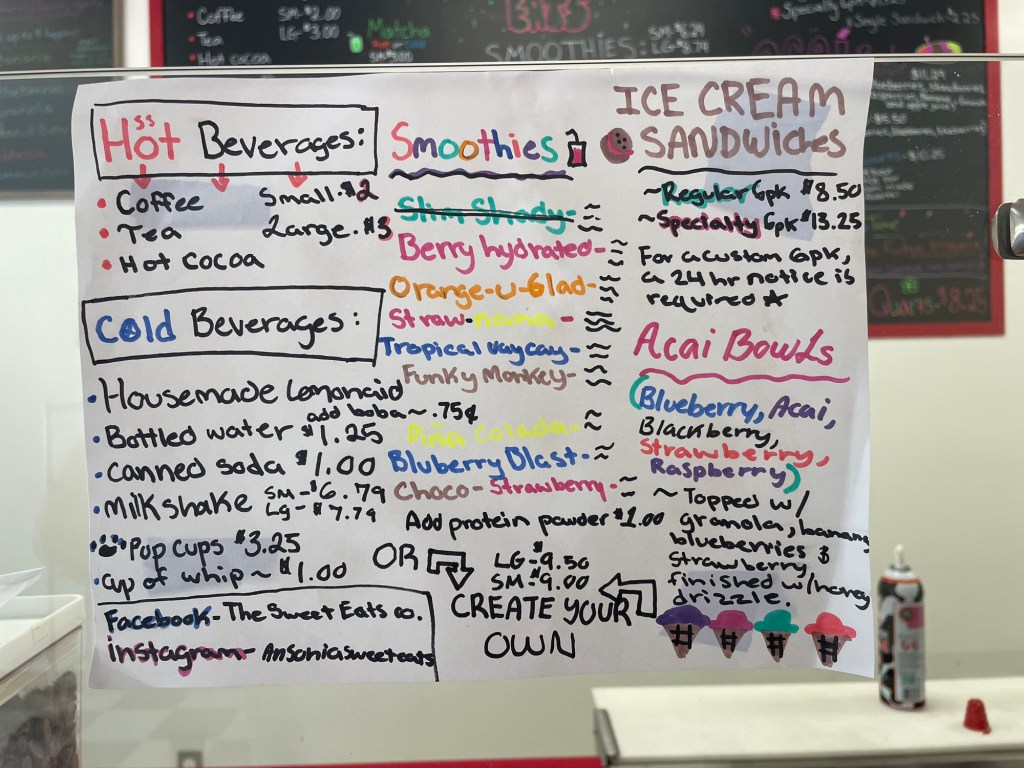 Coffee SM-$2.00
Tea LG-$3.00
Hot cocoa
Matcha
SMOOTHIES:
Quarts-$8.25
Hot Beverages:
• Coffee Small-$2
• Tea Large-$3
• Hot cocoa
Cold Beverages:
• Housemade Lemonaid
add boba ~ .75¢
• Bottled water $1.25
• canned soda $1.00
• milkshake SM-$6.79
Lg-$7.79
• Pup cups $3.25
• cup of whip ~ $1.00
Facebook- The Sweet Eats co.
instagram- Ansoniasweeteats
Smoothies
Slim Shady-
Berry hydrated-
Orange-u-Glad-
Straw-nana-
Tropical vaycay-
Funky Monkey-
Piña Colada-
Bluberry Blast-
Choco-Strawberry-
Add protein powder $1.00
OR
LG-$9.50
SM-$9.00
CREATE YOUR
OWN
ICE CREAM
SANDWICHES
~Regular 6pk $8.50
~Specialty 6pk $13.25
For a custom 6pk,
a 24 hr notice is
required ★
Acai Bowls
(Blueberry, Acai,
Blackberry,
Strawberry,
Raspberry)
~ Topped w/
granola, banana
blueberries $
strawberry
finished w/honey
drizzle.